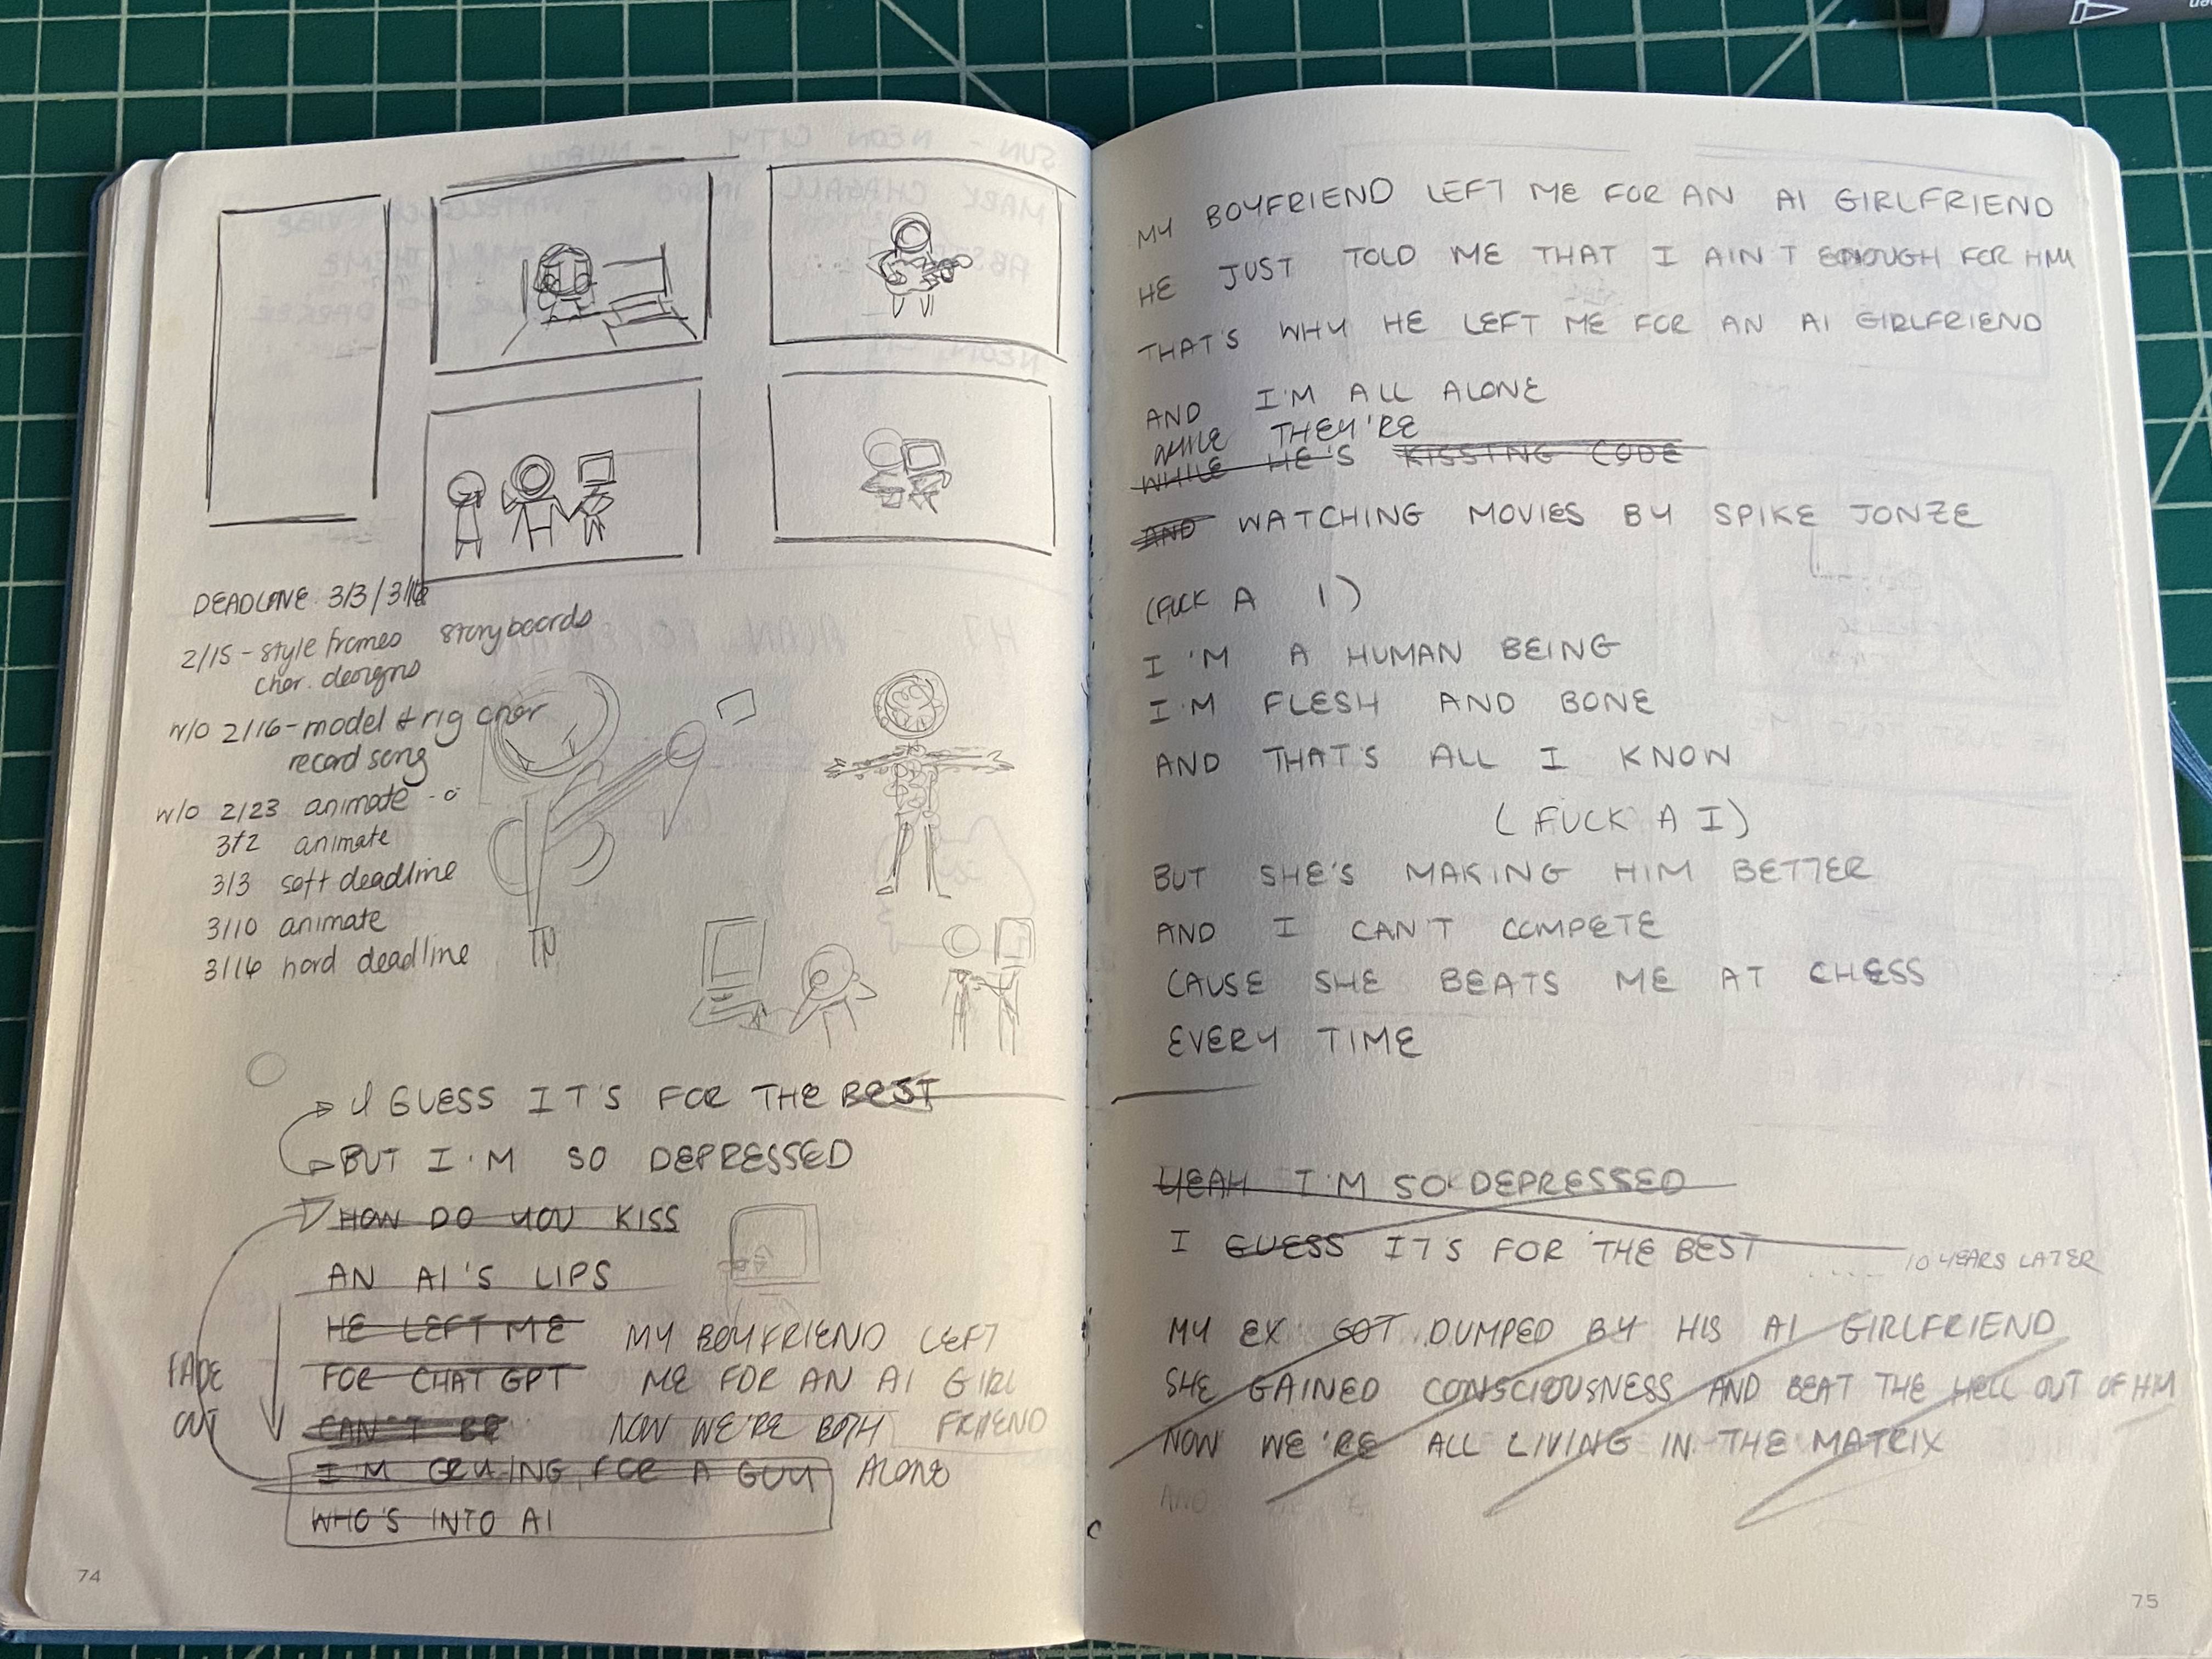 DEADLINE 3/3 / 3/16
2/15 - style frames storyboards
char. designs
w/o 2/16 - model & rig char
record song
w/o 2/23 animate
3/2 animate
3/3 soft deadline
3/10 animate
3/16 hard deadline
I GUESS IT'S FOR THE BEST
BUT I'M SO DEPRESSED
HOW DO YOU KISS
AN AI'S LIPS
HE LEFT ME
FOR CHAT GPT
CAN'T BE
I'M CRUING FOR A GUY
WHO'S INTO AI
MY BOYFRIEND LEFT
ME FOR AN AI GIRL
FRIEND
NOW WE'RE BOTH
ALONE
FADE
OUT
74
MY BOYFRIEND LEFT ME FOR AN AI GIRLFRIEND
HE JUST TOLD ME THAT I AIN'T ENOUGH FOR HIM
THAT'S WHY HE LEFT ME FOR AN AI GIRLFRIEND
AND I'M ALL ALONE
WHILE THEY'RE
WHILE HE'S KISSING CODE
AND WATCHING MOVIES BY SPIKE JONZE
(FUCK A I)
I'M A HUMAN BEING
I'M FLESH AND BONE
AND THAT'S ALL I KNOW
(FUCK A I)
BUT SHE'S MAKING HIM BETTER
AND I CAN'T COMPETE
CAUSE SHE BEATS ME AT CHESS
EVERY TIME
YEAH I'M SO DEPRESSED
I GUESS ITS FOR THE BEST
.... 10 YEARS LATER
MY EX GOT DUMPED BY HIS AI GIRLFRIEND
SHE GAINED CONSCIOUSNESS AND BEAT THE HELL OUT OF HIM
NOW WE'RE ALL LIVING IN THE MATRIX
AND
75